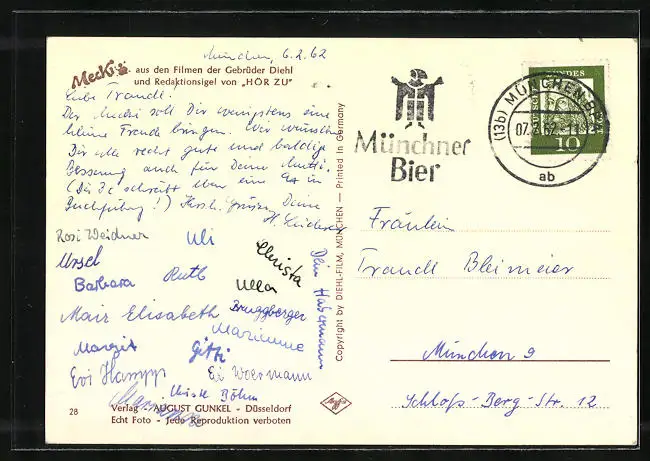 München, 6.2.62
Mecki aus den Filmen der Gebrüder Diehl
und Redaktionsigel von „HÖR ZU"
Liebe Traudl.
Der Mecki soll Dir wenigstens eine
kleine Freude bringen. Wir wünschen
Dir alle recht gute und baldige
Besserung auch für Deine Mutti.
(Die 3c schreibt eben eine Ex in
Buchführung!) Herzl. Grüsse, Deine
H.
Rosi Weidner
Uli
Christa
Ursel
Barbara
Ruth
Ulla
Mair Elisabeth
Bruggberger
Marianne
Margit
Gitti
Evi Hampp
Evi Woermann
Christl Böhm
Dein Habermann
28
Verlag AUGUST GUNKEL - Düsseldorf
Echt Foto - Jede Reproduktion verboten
Copyright by DIEHL-FILM, MÜNCHEN — Printed in Germany
Agfa
Münchner
Bier
(13b) MÜNCHEN
ab
10
Fräulein
Traudl Bleimeier
München 9
Schloß-Berg-Str. 12